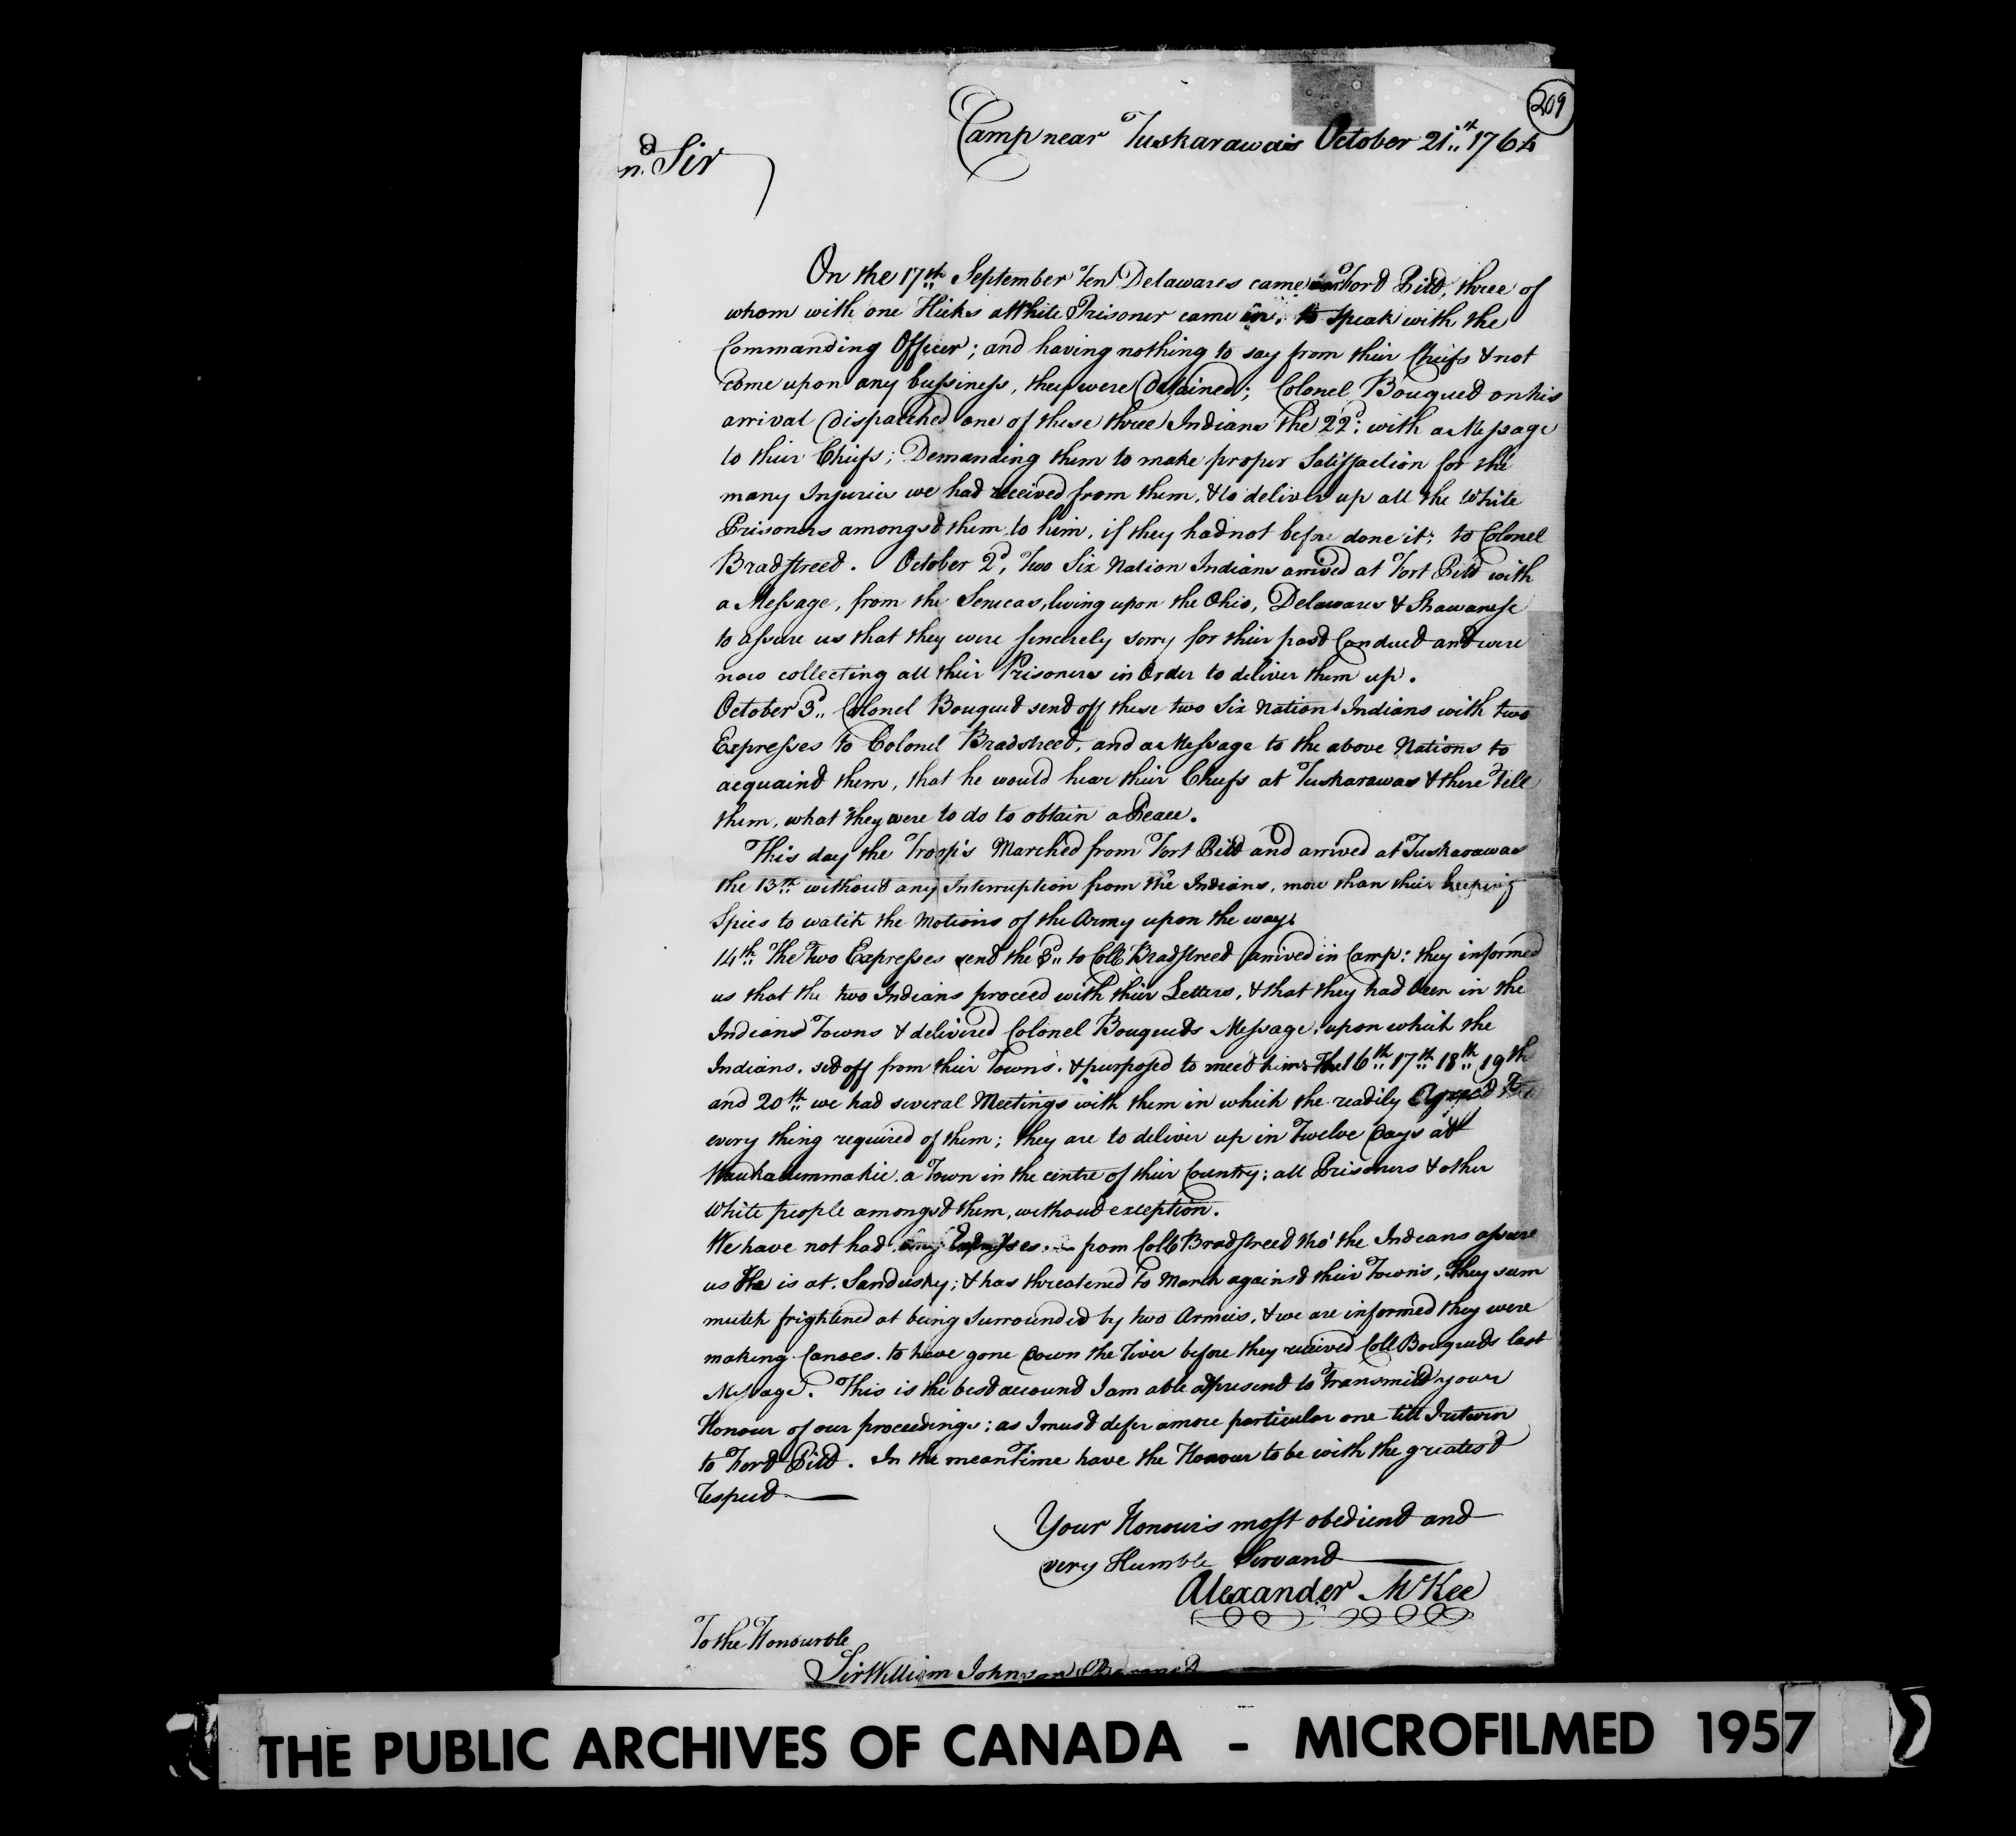 209
Camp near Tuskarawas October 21st 1764
n.d Sir
On the 17th September Ten Delawares came Fort Pitt, three of
whom with one Hicks a White Prisoner came in, to speak with the
Commanding Officer; and having nothing to say from their Chiefs & not
come upon any bussiness, they were Detained; Colonel Bouquet on his
arrival Dispatched one of these three Indians the 22d: with a Message
to their Chiefs; Demanding them to make proper Satisfaction for the
many Injuries we had received from them, & to deliver up all the White
Prisoners amongst them to him, if they had not before done it; to Colonel
Bradstreet. October 2d, Two Six Nation Indians arrived at Fort Pitt with
a Message, from the Senecas, living upon the Ohio, Delawares & Shawanese
to assure us that they were sincerely sorry for their past Conduct and were
now collecting all their Prisoners in Order to deliver them up.
October 3d Colonel Bouquet sent off these two Six Nation Indians with two
Expresses to Colonel Bradstreet, and a Message to the above Nations to
acquaint them, that he would hear their Chiefs at Tuskarawas & there Tell
them, what they were to do to obtain a Peace.
This day the Troops Marched from Fort Pitt and arrived at Tuskarawas
the 13th without any Interruption from the Indians, more than their keeping
Spies to watch the Motions of the Army upon the way.
14th The Two Expresses sent the 3d to Coll Bradstreet arrived in Camp: they informed
us that the two Indians proceed with their Letters, & that they had been in the
Indians Towns & delivered Colonel Bouquets Message, upon which the
Indians. set off from their Towns. & purposed to meet him. The 16th 17th 18th 19th
and 20th we had several Meetings with them in which the readily Agreed to
every thing required of them; they are to deliver up in Twelve Days att
a Town in the centre of their Country; all Prisoners & other
White people amongst them, without exception.
We have not had any Expresses from Coll Bradstreet tho' the Indians assure
us He is at. Sandusky; & has threatened to March against their Towns, They seem
mutch frightened at being Surrounded by two Armies, & we are informed they were
making Canoes. to have gone Down the River before they received Coll Bouquets last
Message. This is the best account I am able at present to Transmitt your
Honour of our proceedings; as I must defer a more particular one till I return
to Fort Pitt. In the mean Time have the Honour to be with the greatest
respect
Your Honours most obedient and
very Humble Servant
Alexander McKee
To the Honourble
Sir William Johnson Baronet
THE PUBLIC ARCHIVES OF CANADA - MICROFILMED 1957